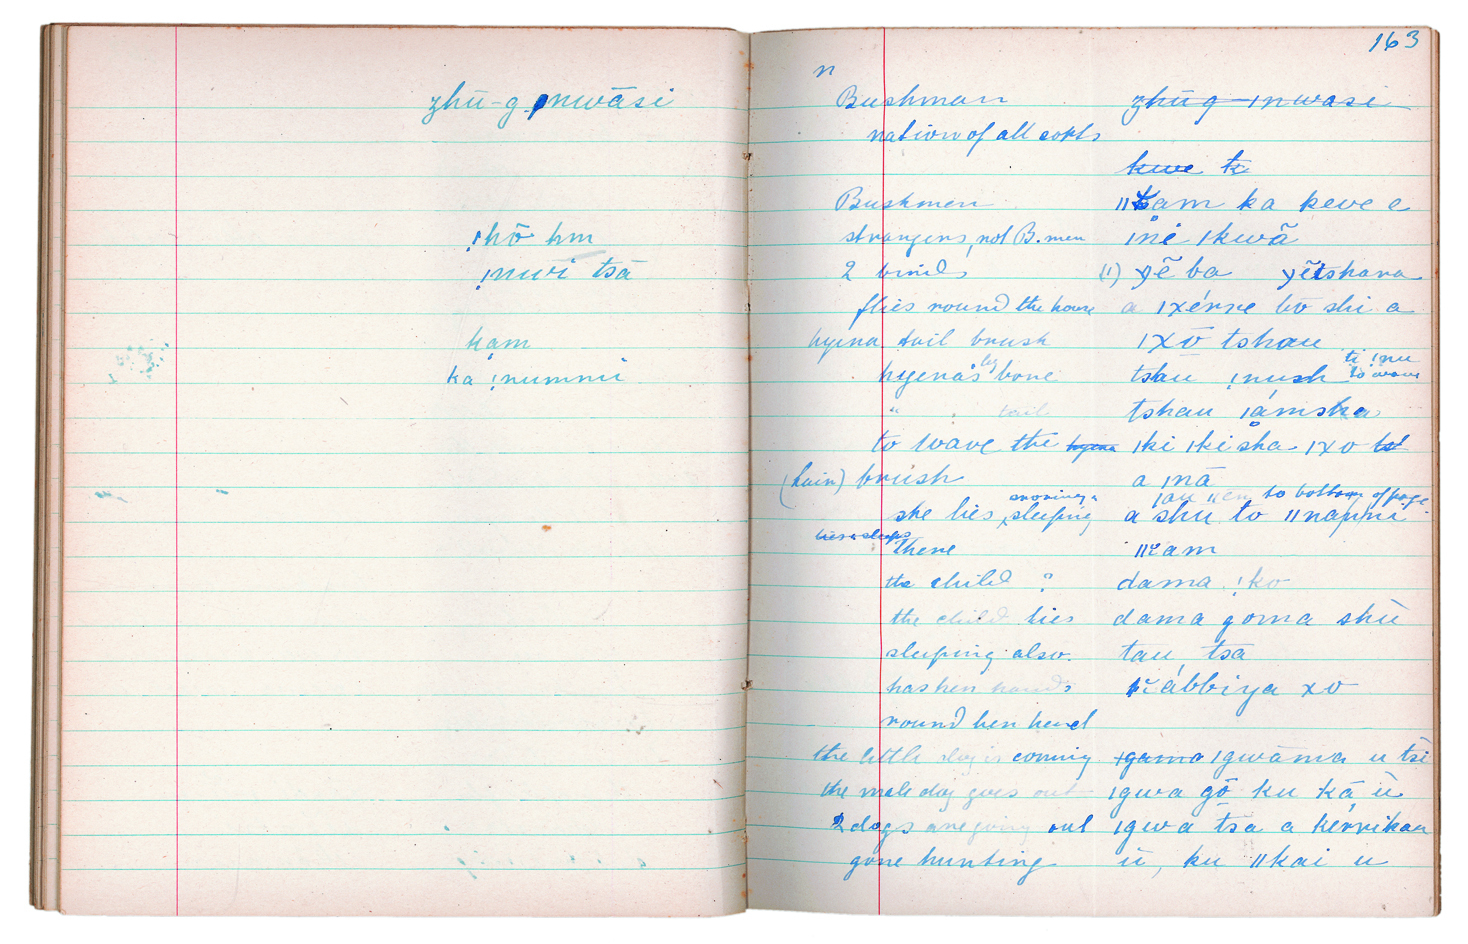 zhū-g ǀnwāsi
!hō hm
!nwi tsā
ham
ka !numnii
163
n
Bushman zhūg ǀnwasi
nation of all sorts
kwe tk
Bushmen ǁkam ka keve e
strangers, not B.men ǀnē ǀkwã
2 birds (ǀǀ) yẽ ba yẽtshara
flies round the house a ǀxérre to shi a
hyena tail brush ǀxō tshau
hyena's leg bone tshau !nush ti !nu
to wave
" tail tshau ǀámsha
to wave the hyena ǀki ǀkisha ǀxo tst
(hair) brush a ǀnā
snoring ǀau ǁen to bottom of page
she lies, sleeping a shu to ǁnapni
lies & sleeps
there ǁkam
the child ? dama !ko
the child lies dama goma shū
sleeping also. tau, tsa
has her hands ábbiya xo
round her head
the little dog is coming ǀgama ǀgwāma u tsi
the male dog goes out ǀgwa gō ku kā ū
2 dogs are going out ǀgwa tsa a kérrikau
gone hunting ū, ku ǁkai u